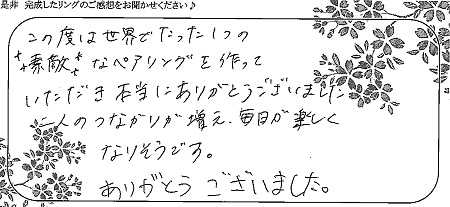 是非 完成したリングのご感想をお聞かせください♪
この度は世界でたった1つの
素敵なペアリングを作って
いただき本当にありがとうございました
二人のつながりが増え、毎日が楽しく
なりそうです。
ありがとうございました。